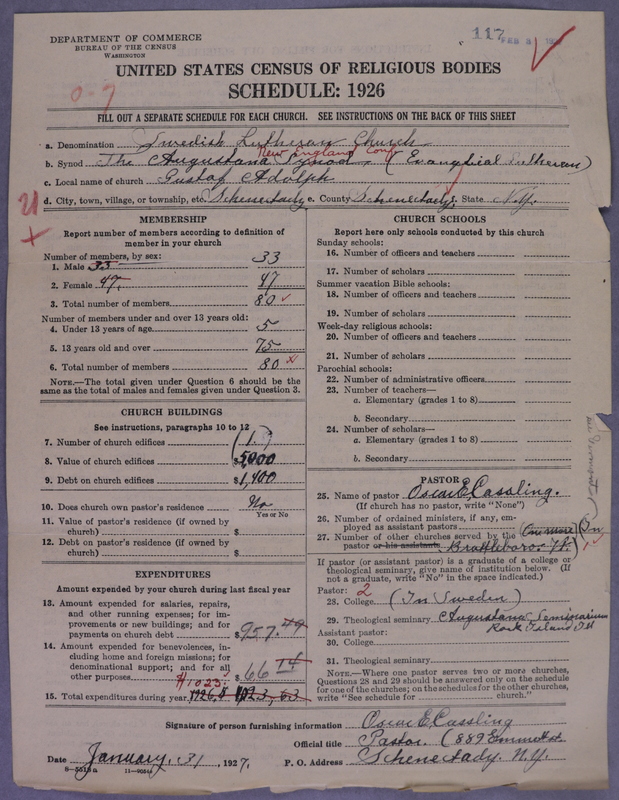 DEPARTMENT OF COMMERCE
BUREAU OF THE CENSUS
WASHINGTON
117 FEB 3
UNITED STATES CENSUS OF RELIGIOUS BODIES
SCHEDULE: 1926
0-9
FILL OUT A SEPARATE SCHEDULE FOR EACH CHURCH. SEE INSTRUCTIONS ON THE BACK OF THIS SHEET
a. Denomination Swedish Lutheran Church
New England Conf
b. Synod The Augustana Synod. (Evanglical Lutheran)
c. Local name of church Gustaf Adolph
d. City, town, village, or township, etc. Schenectady e. County Schenectady f. State N.Y.
MEMBERSHIP
Report number of members according to definition of member in your church
Number of members, by sex:
1. Male 33 33
2. Female 47. 47
3. Total number of members 80
Number of members under and over 13 years old:
4. Under 13 years of age 5
5. 13 years old and over 75
6. Total number of members 80
NOTE.—The total given under Question 6 should be the same as the total of males and females given under Question 3.
CHURCH BUILDINGS
See instructions, paragraphs 10 to 12
7. Number of church edifices (1.)
8. Value of church edifices $5,000
9. Debt on church edifices $1,400
10. Does church own pastor's residence No
Yes or No
11. Value of pastor's residence (if owned by church) $
12. Debt on pastor's residence (if owned by church) $
EXPENDITURES
Amount expended by your church during last fiscal year
13. Amount expended for salaries, repairs, and other running expenses; for improvements or new buildings; and for payments on church debt $957.49
14. Amount expended for benevolences, including home and foreign missions; for denominational support; and for all other purposes $66 14
$1023
15. Total expenditures during year 1023,63
CHURCH SCHOOLS
Report here only schools conducted by this church
Sunday schools:
16. Number of officers and teachers
17. Number of scholars
Summer vacation Bible schools:
18. Number of officers and teachers
19. Number of scholars
Week-day religious schools:
20. Number of officers and teachers
21. Number of scholars
Parochial schools:
22. Number of administrative officers
23. Number of teachers—
a. Elementary (grades 1 to 8)
b. Secondary
24. Number of scholars—
a. Elementary (grades 1 to 8)
b. Secondary
PASTOR
25. Name of pastor Oscar E Cassling.
(If church has no pastor, write "None")
26. Number of ordained ministers, if any, employed as assistant pastors
27. Number of other churches served by the pastor or his assistants (One more) Brattleboro. Vt.
If pastor (or assistant pastor) is a graduate of a college or theological seminary, give name of institution below. (If not a graduate, write "No" in the space indicated.)
Pastor: 2
28. College (In Sweden)
29. Theological seminary Augustana Seminarium
Rock Island Ill
Assistant pastor:
30. College
31. Theological seminary
NOTE.—Where one pastor serves two or more churches, Questions 28 and 29 should be answered only on the schedule for one of the churches; on the schedules for the other churches, write "See schedule for church."
Signature of person furnishing information Oscar E Cassling
Official title Pastor. (889 Emmett st
Date January. 31, 1927. P. O. Address Schenectady. N.Y.